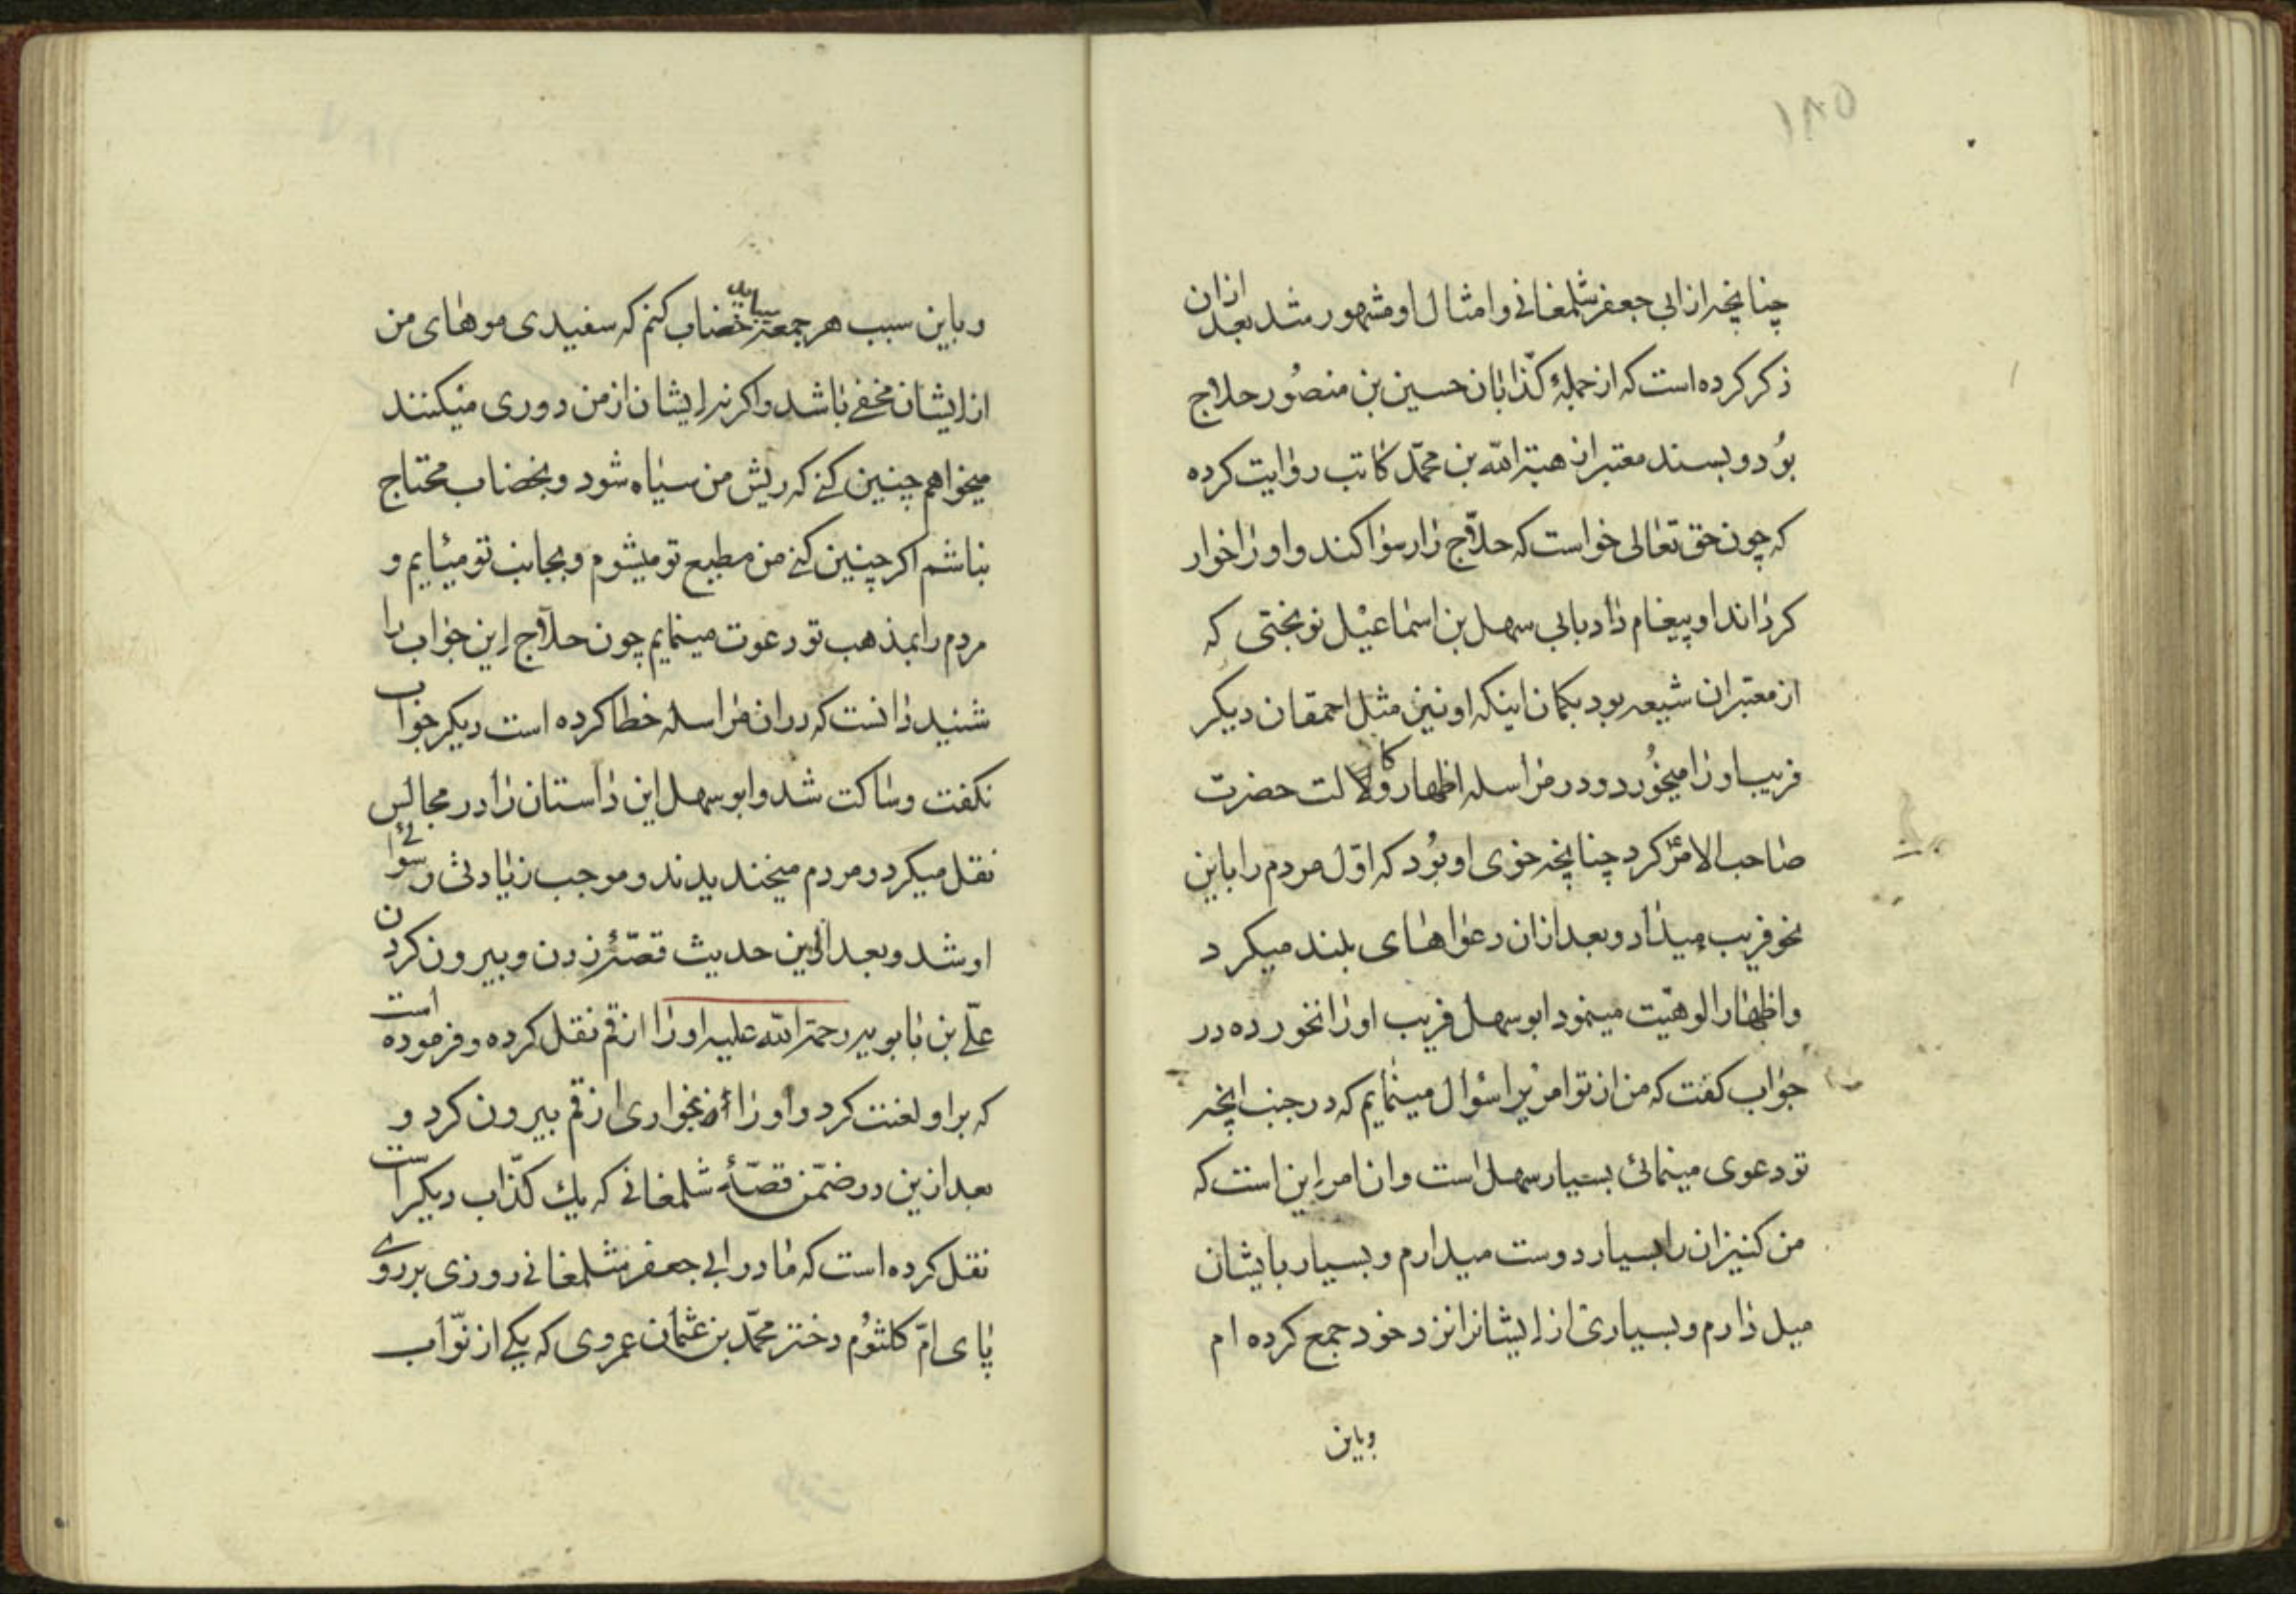 ۱۸۵
چنانچه از ابی جعفر شلمغانی و امثال او مشهور شد بعد ازان
ذکر کرده است که از جملهٔ کذّابان حسین بن منصُور حلاج
بوُد و بسند معتبر از هبة الله بن محمّد کاتب روایت کرده
که چون حق تعالی خواست که حلّاج را رسوا کند و او را خوار
کرداند او پیغام داد بابی سهل بن اسماعیل نوبختی که
از معتبران شیعه بود بکمان اینکه او نیز مثل احمقان دیکر
فریب او را میخوُرد و در مراسله اظهار وکالت حضرت
صاحب الامر کرد چنانچه خوی او بوُد که اوّل مردم را باین
نحو فریب میداد و بعد ازان دعواهای بلند میکرد
و اظهار الوهیّت مینمود ابو سهل فریب او را نخورده در
جواب کفت که من از تو امریرا سؤال مینمایم که در جنب انچه
تو دعوی مینمائی بسیار سهل است و ان امر این است که
من کنیزان را بسیار دوست میدارم و بسیار بایشان
میل دارم و بسیاری از ایشانرا نزد خود جمع کرده ام
و باین
و باین سبب هر جمعه میباید خضاب کنم که سفیدی موهای من
از ایشان مخفی باشد و اکر نه ایشان از من دوری میکنند
میخواهم چنین کنی که ریش من سیاه شود و بخضاب محتاج
نباشم اکر چنین کنی من مطیع تو میشوم و بجانب تو میایم و
مردم را بمذهب تو دعوت مینمایم چون حلّاج این جواب را
شنید دانست که دران مراسله خطا کرده است دیکر جواب
نکفت و ساکت شد و ابو سهل این داستان را در مجالس
نقل میکرد و مردم میخندیدند و موجب زیادتی رسوائی
او شد و بعد از این حدیث قصّهٔ زدن و بیرون کردن
علّی بن بابویه رحمة الله علیه او را از قم نقل کرده و فرموده است
که بر او لعنت کرد و او را بخواری از قم بیرون کرد و
بعد ازین در ضمن قصّهٔ شلمغانی که یك کذّاب دیکر است
نقل کرده است که مادر ابی جعفر شلمغانی روزی بر روی
پای امّ کلثوُم دختر محمّد بن عثمان عمروی که یکی از نوّاب